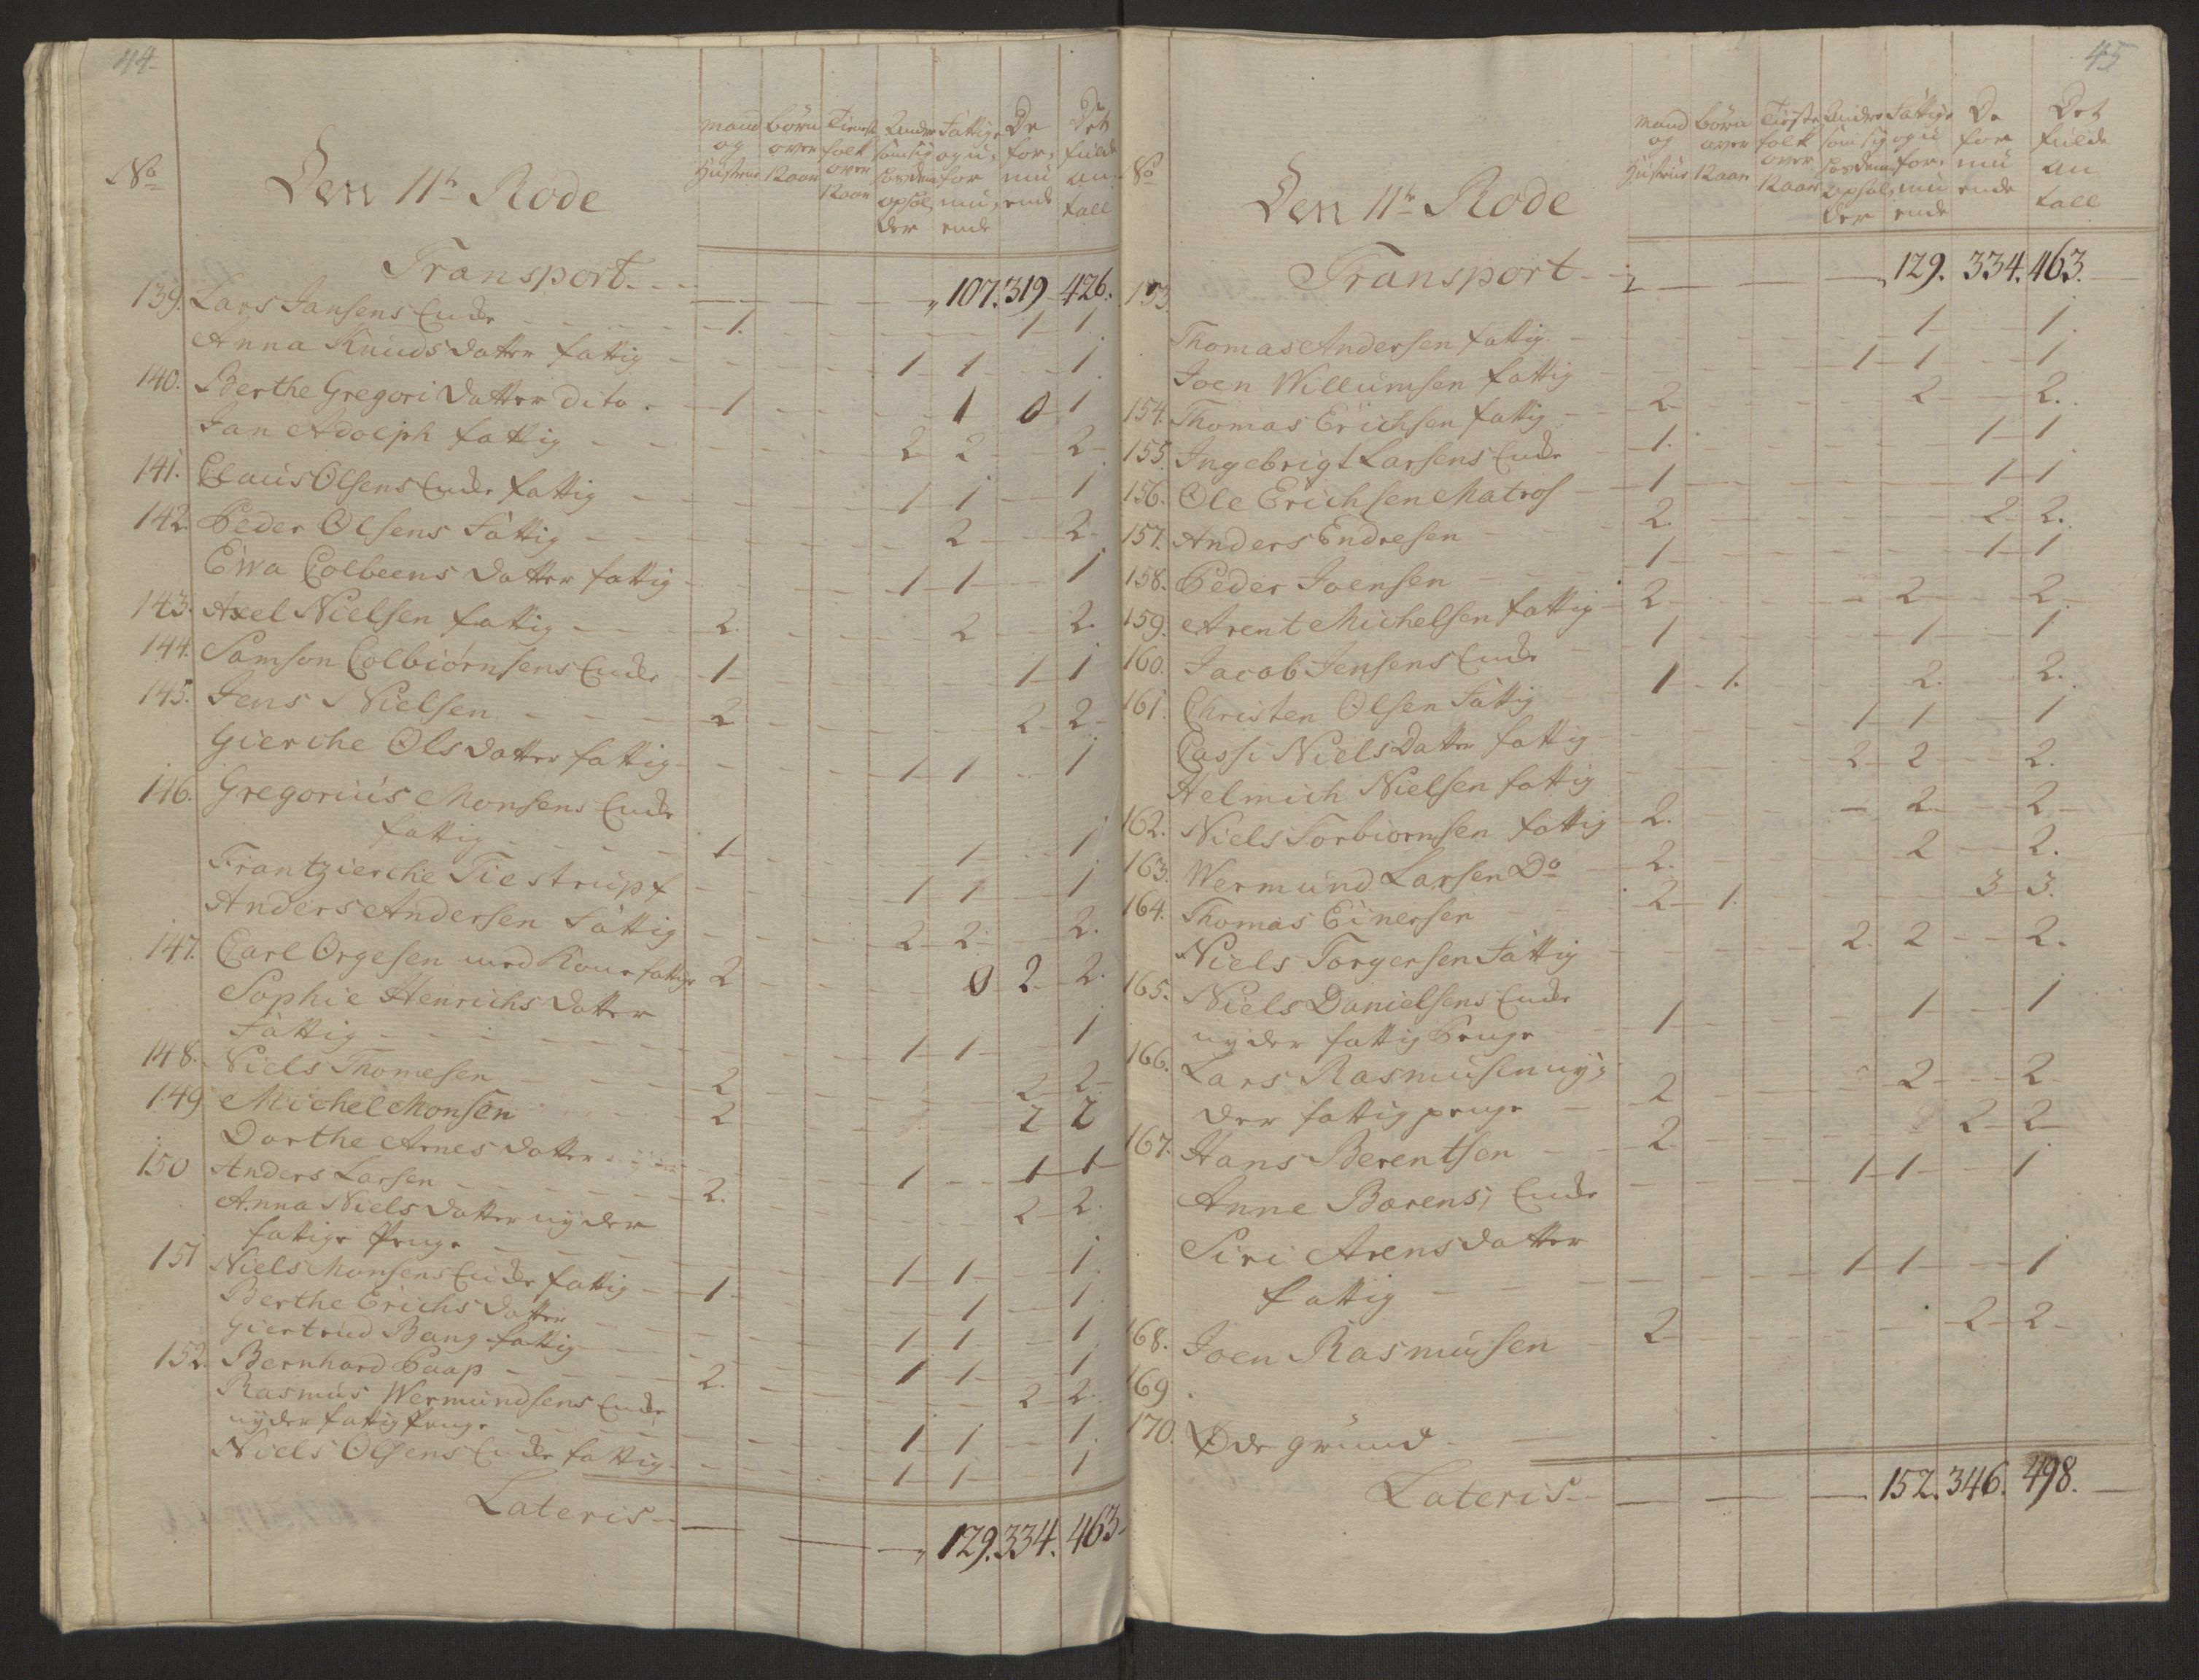 44
No
Den 11te Rode
Mand og Hustrue
Børn over 12 Aar
Tieneste folk over 12 Aar
Andre som sig hos dem ophol, der
Fattige og u, for mu, ende
De for, mu ende
Det fulde an tall
Transport - - - 107. 319 426.
139. Lars Jansens Encke - 1. - 1 1
Anna Knuds datter fattig - 1 1 - 1
140. Berthe Gregori datter dito - 1 - 1 0 1
Jan Adolph fattig - 2 2 - 2
141. Claus Olsens Encke fattig - 1 1 - 1
142. Peder Olsens fattig - 2 - 2
Ewa Colbeens datter fattig - 1 1 - 1
143. Axel Nielsen fattig - 2. - 2 - 2.
144. Samson Colbiørnsens Encke - 1 - 1 1
145. Jens Nielsen - 2 - 2 2
Gierche Ols datter fattig - 1 1 - 1
146. Gregorius Monsens Encke
fattig - 1 - 1 - 1
Frantzierche Tiestrup f - 1 1 - 1
Anders Andersen fattig - 2 2 - 2.
147. Carl Orgesen med Kone fattige 2 - 0 2 2.
Sophie Henrichs datter
fattig - 1 1 - 1
148. Niels Thomesen - 2 - 2 2
149 Michel Monsen - 2 - 2 2
Dorthe Arnes datter - 1 - 1 1
150 Anders Larsen - 2. - 2 2.
Anna Niels datter nyder
fatige Penge - 1 1 - 1.
151 Niels Monsens Encke fattig - 1 - 1 - 1
Berthe Erichs datter - 1 1 - 1
Giertrud Bang fattig - 1 1 - 1
152. Bernhard Paap - 2. - 2 2.
Rasmus Wermundsens Encke
nyder fattig Penge - 1 1 - 1.
Niels Olsens Encke fattig - 1 1 - 1
Lateris - 129. 334. 463.
45
No
Den 11te Rode
Mand og Hustrue
Børn over 12 Aar
Tieneste folk over 12 Aar
Andre som sig hos dem ophol, der
Fattige og u for, mu ende
De for mu ende
Det fulde an tall
Transport - 129. 334. 463.
153.
Thomas Andersen fattig - 1 - 1.
Joen Willumsen fattig - 1 1 - 1
154. Thomas Erichsen fattig - 2 - 2 - 2.
155. Ingebrigt Larsens Encke - 1. - 1 1
156. Ole Erichsen Matros - 1 - 1 1
157. Anders Endresen - 2. - 2 2.
158. Peder Joensen - 1 - 1 1
159. Arent Michelsen fattig - 2 - 2 - 2
160. Jacob Jensens Encke - 1 - 1 - 1
161. Christen Olsen fattig - 1 1. - 2. - 2.
Cassi Niels Datter fattig - 1 1 - 1
Helmich Nielsen fattig - 2 2 - 2.
162. Niels Torbiørnsen fattig - 2. - 2 - 2
163. Wermund Larsen Do - 2. - 2 - 2.
164. Thomas Einersen - 2 1. - 3 3.
Niels Torgersen fattig - 2. 2 - 2.
165. Niels Danielsens Encke
nyder fattig Penge - 1 - 1 - 1
166. Lars Rasmusen ny,
der fattig penge - 2 - 2 - 2
167. Hans Berentsen - 2 - 2 2
Anne Barens, Encke - 1 1 - 1
Siri Arensdatter
fattig - 1 1 - 1
168. Joen Rasmusen - 2 - 2 2
169.
170. Øde grund
Lateris - 152. 346. 498.